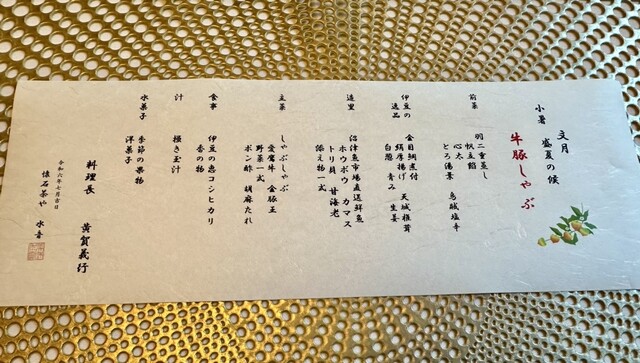 文月
盛夏の候
小暑
牛豚しゃぶ
前菜
羽二重蒸し 烏賊塩辛
帆立餡
心太
とろ湯葉
伊豆の
逸品
金目鯛煮付
絹厚揚げ 天城椎茸
白髪 青み 生姜
造里
沼津魚市場直送鮮魚
ホウボウ カマス
トリ貝 甘海老
添え物一式
主菜
しゃぶしゃぶ
愛鷹牛 金豚王
野菜一式
ポン酢 胡麻だれ
食事
伊豆の恵コシヒカリ
香の物
汁
掻き玉汁
水菓子
季節の果物
洋菓子
料理長 黄賀義行
令和六年七月吉日
懐石茶や 水音